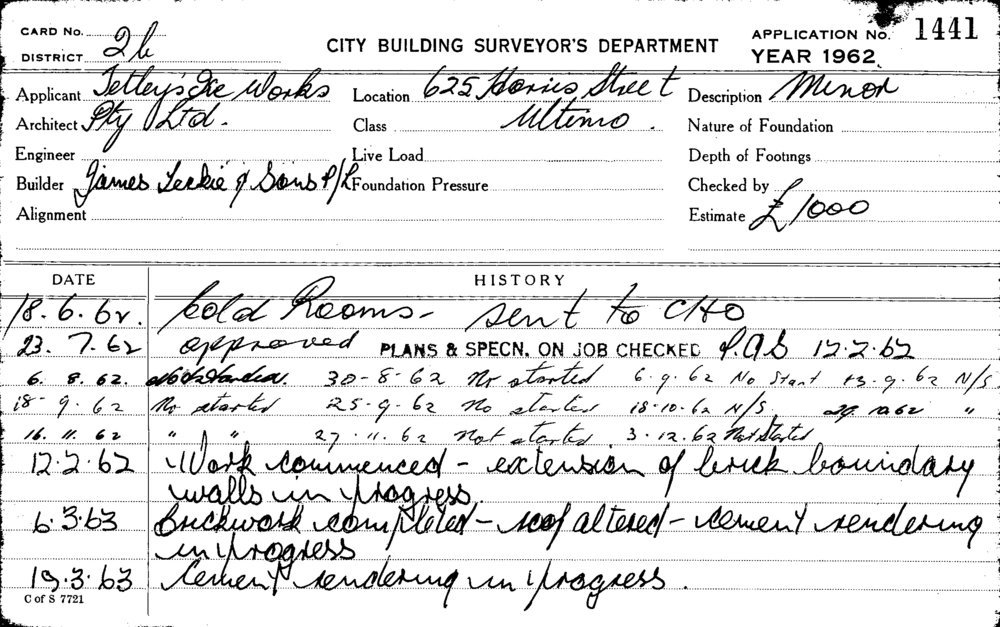 CARD No.
DISTRICT 26
CITY BUILDING SURVEYOR'S DEPARTMENT
APPLICATION No. 1441
YEAR 1962
Applicant Tetley's Ice Works Location 625 Harris Street Description Minor
Architect Pty Ltd. Class Ultimo. Nature of Foundation
Engineer Live Load Depth of Footings
Builder James Leckie & Sons P/L Foundation Pressure Checked by
Alignment Estimate £1000
DATE HISTORY
18.6.62. Cold Rooms - sent to CHO
23.7.62 approved PLANS & SPECN. ON JOB CHECKED P.A.S 12.2.62
6.8.62. Not Started. 30-8-62 Not started 6.9.62 No Start 13.9.62 N/S
18-9-62 No started 25-9-62 No started 18-10-62 N/S. 29.10.62 "
16.11.62 " " 27.11.62 Not started. 3.12.62 Not Started
12.2.62 Work commenced - extension of brick boundary
walls in progress.
6.3.63 Brickwork completed - roof altered - cement rendering
in progress
19.3.63 Cement rendering in progress.
C of S 7721